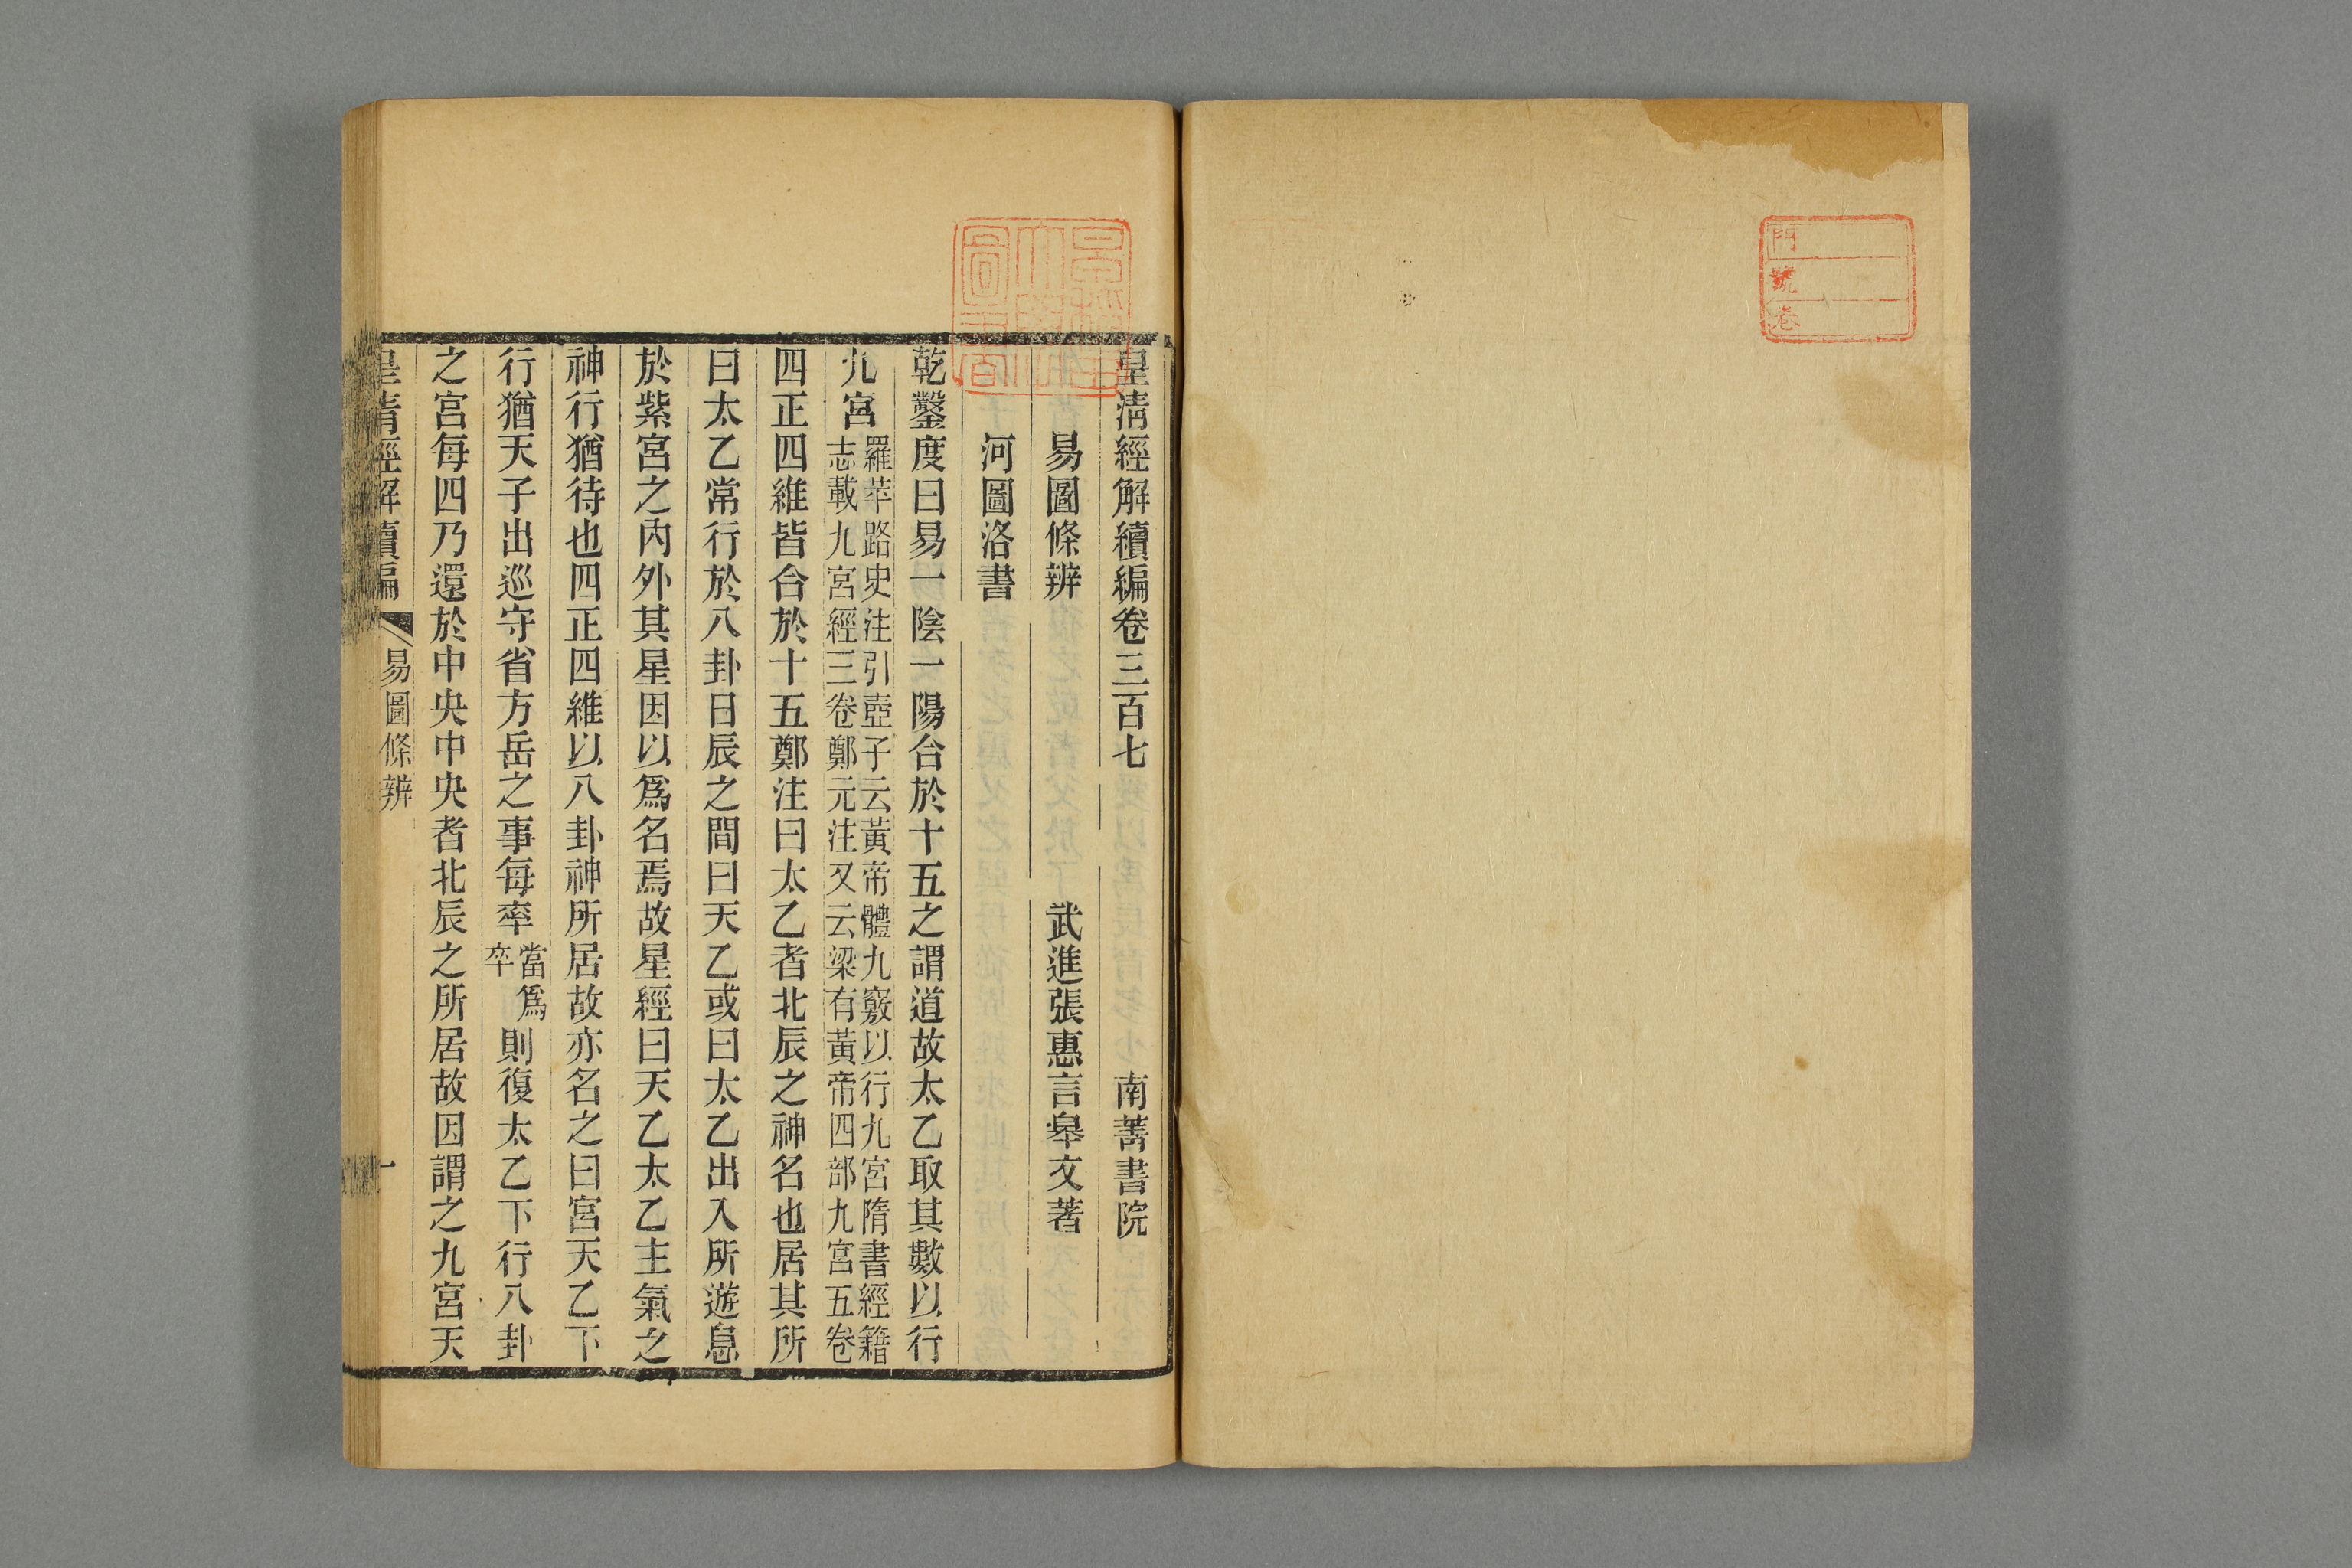 門
號
卷
皇清經解續編卷三百七　南菁書院
易圖條辨　武進張惠言皋文著
河圖洛書
乾鑿度曰易一陰一陽合於十五之謂道故太乙取其數以行
九宮羅苹路史注引壺子云黃帝體九竅以行九宮隋書經籍
志載九宮經三卷鄭元注又云梁有黃帝四部九宮五卷
四正四維皆合於十五鄭注曰太乙者北辰之神名也居其所
曰太乙常行於八卦日辰之間曰天乙或曰太乙出入所遊息
於紫宮之內外其星因以爲名焉故星經曰天乙太乙主氣之
神行猶待也四正四維以八卦神所居故亦名之曰宮天乙下
行猶天子出巡守省方岳之事每率當爲卒則復太乙下行八卦
之宮每四乃還於中央中央者北辰之所居故因謂之九宮天
皇清經解續編　易圖條辨　一